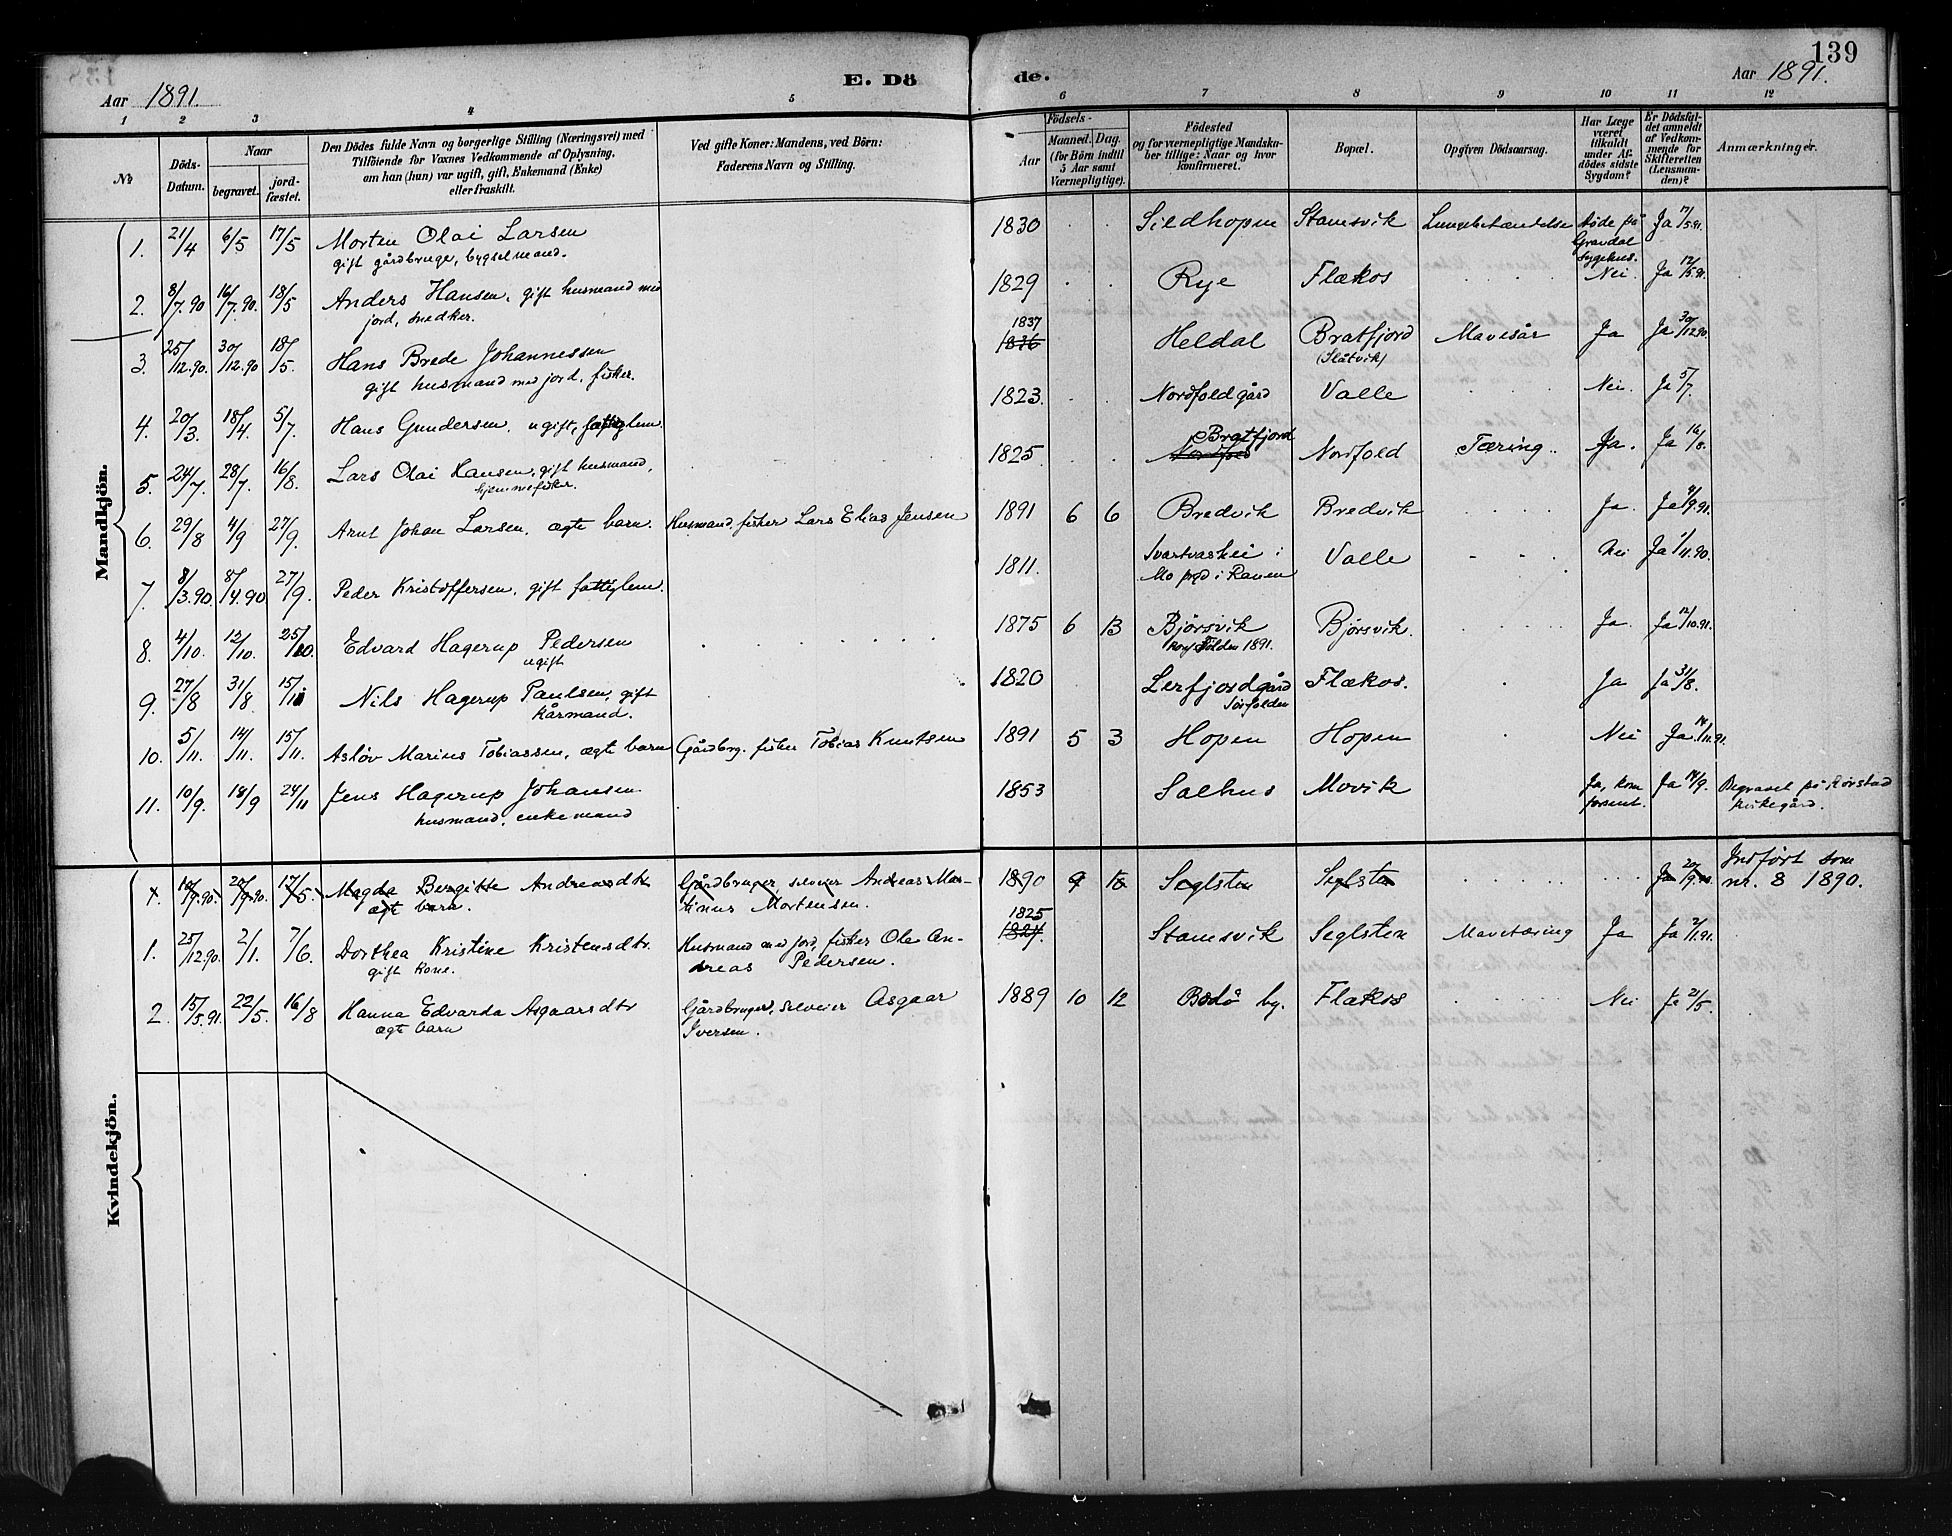 139
Aar 1891.
E. Dö de.
Aar 1891.
1 2 3 4 5 6 7 8 9 10 11 12
№
Döds-Datum.
Naar
begravet.
jord-fæstet.
Den Dödes fulde Navn og borgerlige Stilling (Næringsvei) med
Tilföiende for Voxnes Vedkommende af Oplysning,
om han (hun) var ugift, gift, Enkemand (Enke)
eller fraskilt.
Ved gifte Koner: Mandens, ved Börn:
Faderens Navn og Stilling.
Födsels-
Aar
Maaned. Dag.
(for Börn indtil
5 Aar samt
Værnepligtige).
Födested
og for værnepligtige Mandska-
ber tillige: Naar og hvor
konfirmeret.
Bopæl.
Opgiven Dödsaarsag.
Har Læge
været
tilkaldt
under Af-
dödes sidste
Sygdom?
Er Dödsfal-
det anmeldt
af Vedkom-
mende for
Skifteretten
(Lensman-
den)?
Anmærkninger.
Mandkjön.
1. 21/4 6/5 17/5 Morten Olai Larsen 1830 Sildhopen Stamsvik Lungebetændelse Døde på Ja 17/5 91.
gift gårdbruger, bygselmand. Gravdal
sygehus.
2. 8/7. 90 16/7. 90 18/5 Anders Hansen, gift husmand med 1829 Rye Flækos Nei Ja 12/5 91.
jord, snedker.
3. 25/12. 90. 30/12. 90 18/5. Hans Brede Johannessen 1837 1836 Heldal Bratfjord Mavesår Ja Ja 30/12 90.
gift husmand med jord, fisker. (Slåtvik)
4. 20/3. 18/4. 5/7 Hans Gundersen, ugift, fattiglem 1823. Nordfoldgård Valle Nei. Ja 5/7.
5. 24/7. 28/7. 16/8 Lars Olai Hansen, gift husmand, 1825 Nordfold Bratfjord Nordfold Tæring. Ja. Ja 16/8.
hjemmefisker.
6. 29/8 4/9 27/9. Arnt Johan Larsen, ægte barn. Husmand, fisker Lars Elias Jensen 1891 6 6 Bredvik Bredvik Ja. Ja 4/9 91.
7. 8/3. 90. 8/4. 90 27/9. Peder Kristoffersen, gift fattiglem. 1811. Svartvashei i Valle Nei Ja 1/11. 90.
Mo prgd i Ranen
8. 4/10. 12/10. 25/10. Edvard Hagerup Pedersen 1875 6 13 Bjørsvik Bjørsvik. Ja. Ja 12/10. 91.
ugift konf. Folden 1891.
9. 27/8 31/8. 15/11 Nils Hagerup Paulsen, gift 1820 Lerfjordgård Flækos. Ja Ja 31/8.
kårmand. Sørfolden
10. 5/11. 14/11. 15/11. Asløv Marius Tobiassen, ægte barn Gårdbrg. fisker Tobias Knutsen 1891 5 3 Hopen Hopen Nei Ja 14/11. 91.
11. 10/9. 18/9 24/11 Jens Hagerup Johansen 1853 Salhus Movik Ja, kom Ja 14/9. Begravet på Rørstad
husmand, enkemand forsent. kirkegård.
Kvindekjön.
1. 10/9. 90. 20/9. 90. 17/5. Magda Bergitte Andreasdtr Gårdbruger, selveier Andreas Mar- 1890 9 18 Seglsten Seglsten Ja 20/9. 90 Indført som
ægte barn. tinus Mortensen. nr. 8 1890.
1. 25/12. 90. 2/1. 7/6. Dorthea Kristine Kristensdtr. Husmand med jord, fisker Ole An- 1825 1824. Stamsvik Seglsten Mavetæring Ja Ja 2/1. 91.
gift kone. dreas Pedersen.
2. 15/5. 91. 22/5. 16/8 Hanna Edvarda Asgaarsdtr Gårdbruger, selveier Asgaar 1889 10 12 Bodø by. Flækos Nei Ja 21/5.
ægte barn Iversen.